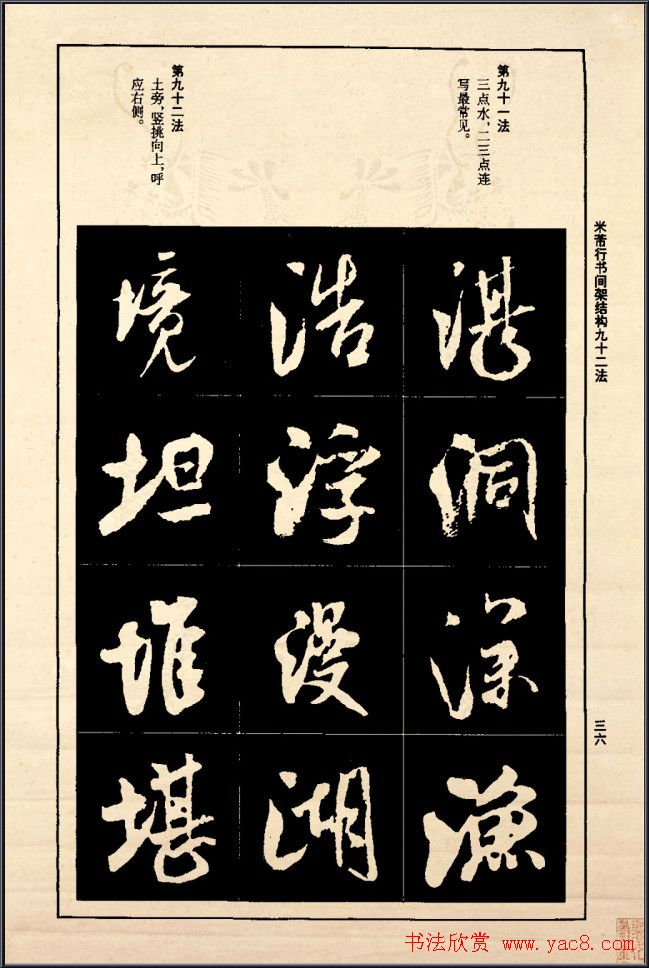 米芾行书间架结构九十二法
三六
第九十一法
三点水，二三点连
写最常见。
湛
洞
深
渔
浩
浮
漫
湖
第九十二法
土旁，竖挑向上，呼
应右侧。
境
坦
堆
堪
书法欣赏 www.yac8.com